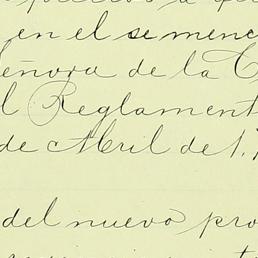 en el se menc
eñora de la C
l Reglament
de Abril de 1.
del nuevo pro